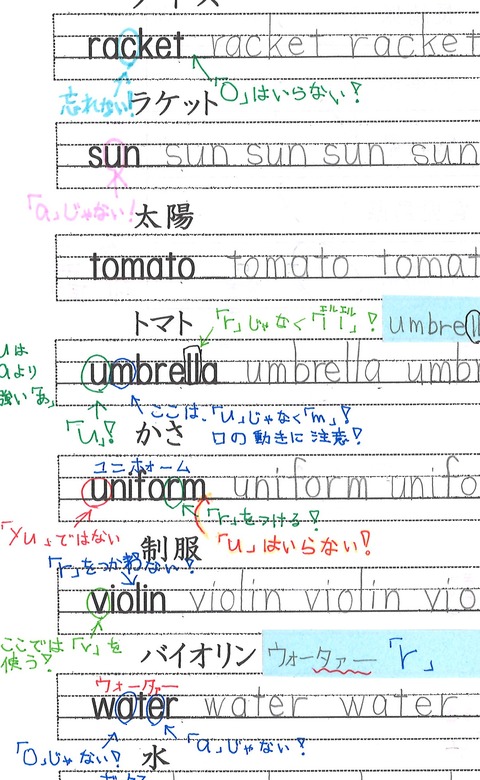 racket racket racket
忘れない!
「o」はいらない!
ラケット
sun sun sun sun sun
「a」じゃない!
太陽
tomato tomato tomat
トマト
エルエル
「r」じゃなく「ll」!
umbrell
uは
aより
強い「あ」
umbrella umbrella umbr
「u」!
ここは、「u」じゃなく「m」!
口の動きに注意!
かさ
ユニホォーム
uniform uniform unifo
「r」をつける!
「yu」ではない
「u」はいらない!
制服
「r」をつかわない!
violin violin violin vio
ここでは「v」を
使う!
バイオリン
ウォーターァー 「r」
ウォーターァー
water water water
「o」じゃない!
「a」じゃない!
水